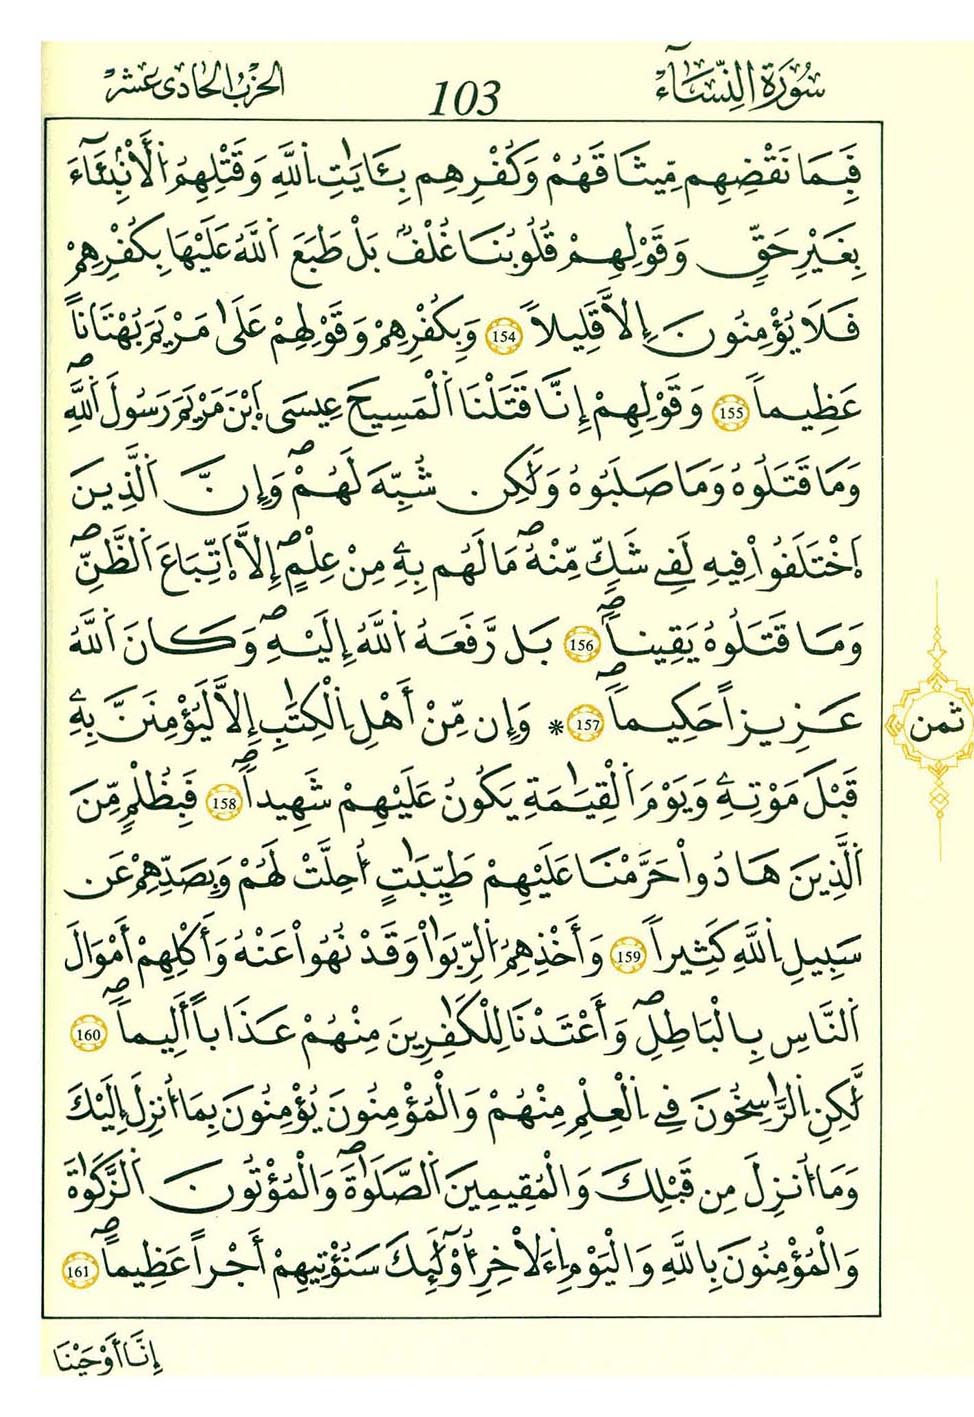 سُورَةُ النِّسَآء
103
الحزب الحادى عشر
فَبِمَا نَقْضِهِم مِّيثَاقَهُمْ وَكُفْرِهِم بِـَٔايَٰتِ اِ۬للَّهِ وَقَتْلِهِمُ اُ۬لْأَنۢبِئَآءَ
بِغَيْرِ حَقٍّ وَقَوْلِهِمْ قُلُوبُنَا غُلْفُۢ بَلْ طَبَعَ اَ۬للَّهُ عَلَيْهَا بِكُفْرِهِمْ
فَلَا يُؤْمِنُونَ إِلَّا قَلِيلاً 154 وَبِكُفْرِهِمْ وَقَوْلِهِمْ عَلَىٰ مَرْيَمَ بُهْتَاناً
عَظِيماً 155 وَقَوْلِهِمْ إِنَّا قَتَلْنَا اَ۬لْمَسِيحَ عِيسَى اَ۪بْنَ مَرْيَمَ رَسُولَ اَ۬للَّهِ
وَمَا قَتَلُوهُ وَمَا صَلَبُوهُ وَلَٰكِن شُبِّهَ لَهُمْ وَإِنَّ اَ۬لَّذِينَ
اَ۪خْتَلَفُواْ فِيهِ لَفِے شَكٍّ مِّنْهُ مَا لَهُم بِهِۦ مِنْ عِلْمٍ إِلَّا اَ۪تِّبَاعَ اَ۬لظَّنِّ
وَمَا قَتَلُوهُ يَقِيناً 156 بَل رَّفَعَهُ اُ۬للَّهُ إِلَيْهِ وَكَانَ اَ۬للَّهُ
عَزِيزاً حَكِيماً 157 * وَإِن مِّنْ أَهْلِ اِ۬لْكِتَٰبِ إِلَّا لَيُؤْمِنَنَّ بِهِۦ
ثمن
قَبْلَ مَوْتِهِۦ وَيَوْمَ اَ۬لْقِيَٰمَةِ يَكُونُ عَلَيْهِمْ شَهِيداً 158 فَبِظُلْمٍ مِّنَ
اَ۬لَّذِينَ هَادُواْ حَرَّمْنَا عَلَيْهِمْ طَيِّبَٰتٍ ا۟حِلَّتْ لَهُمْ وَبِصَدِّهِمْ عَن
سَبِيلِ اِ۬للَّهِ كَثِيراً 159 وَأَخْذِهِمُ اُ۬لرِّبَوٰاْ وَقَدْ نُهُواْ عَنْهُ وَأَكْلِهِمْ أَمْوَالَ
اَ۬لنَّاسِ بِالْبَاطِلِ وَأَعْتَدْنَا لِلْكَٰفِرِينَ مِنْهُمْ عَذَاباً أَلِيماً 160
لَّٰكِنِ اِ۬لرَّٰسِخُونَ فِے اِ۬لْعِلْمِ مِنْهُمْ وَالْمُؤْمِنُونَ يُؤْمِنُونَ بِمَا أُنزِلَ إِلَيْكَ
وَمَا أُنزِلَ مِن قَبْلِكَ وَالْمُقِيمِينَ اَ۬لصَّلَوٰةَ وَالْمُؤْتُونَ اَ۬لزَّكَوٰةَ
وَالْمُؤْمِنُونَ بِاللَّهِ وَالْيَوْمِ اِ۬ءَلْأخِرِ أُوْلَٰٓئِكَ سَنُؤْتِيهِمْ أَجْراً عَظِيماً 161
إِنَّا أَوْحَيْنَا